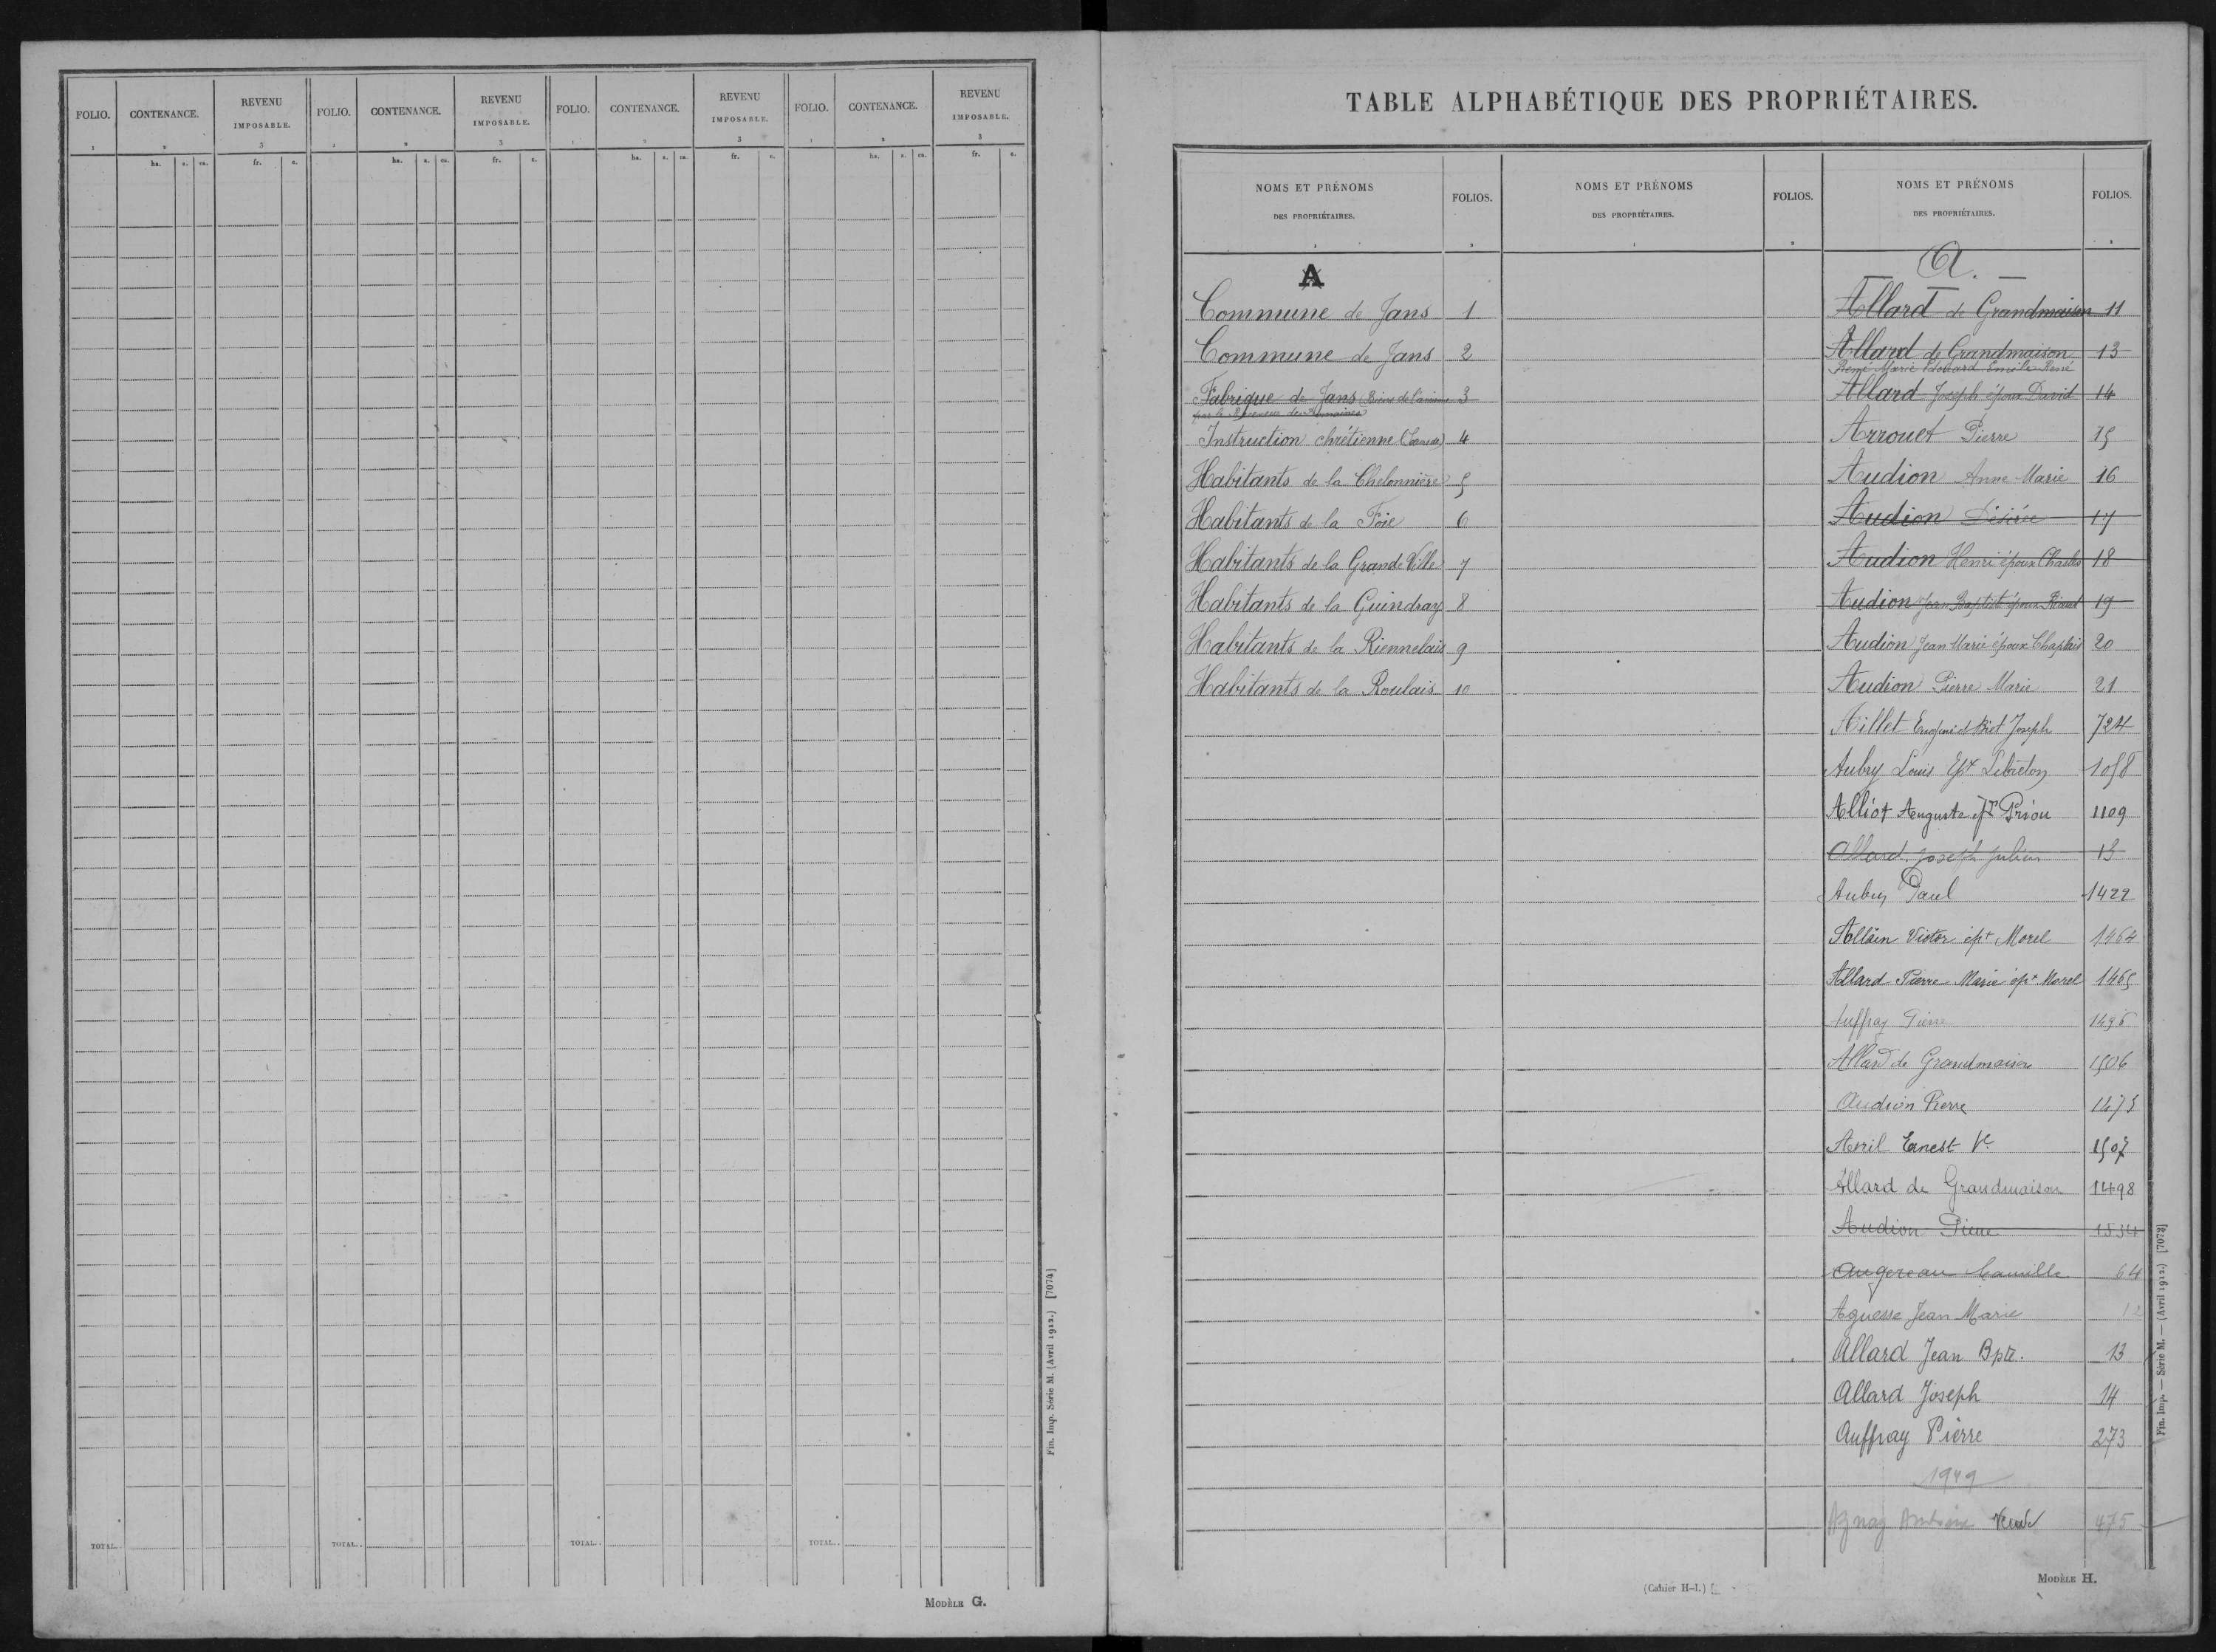 FOLIO. CONTENANCE. REVENU IMPOSABLE. FOLIO. CONTENANCE. REVENU IMPOSABLE. FOLIO. CONTENANCE. REVENU IMPOSABLE. FOLIO. CONTENANCE. REVENU IMPOSABLE.
1 2 3 1 2 3 1 2 3 1 2 3
ha. a. ca. fr. c. ha. a. ca. fr. c. ha. a. ca. fr. c. ha. a. ca. fr. c.
TOTAL. TOTAL. TOTAL. TOTAL.
Fin. Imp. Série M. (Avril 1912.) [7074]
MODÈLE G.
TABLE ALPHABÉTIQUE DES PROPRIÉTAIRES.
NOMS ET PRÉNOMS DES PROPRIÉTAIRES. FOLIOS. NOMS ET PRÉNOMS DES PROPRIÉTAIRES. FOLIOS. NOMS ET PRÉNOMS DES PROPRIÉTAIRES. FOLIOS.
1 2 1 2 1 2
A
Commune de Jans 1
Commune de Jans 2
Fabrique de Jans 3
Instruction chrétienne 4
Habitants de la Chelonnière 5
Habitants de la Foie 6
Habitants de la Grande Ville 7
Habitants de la Guindray 8
Habitants de la Riennelais 9
Habitants de la Roulais 10
A.
Allard de Grandmaison 11
Allard de Grandmaison 13
René Marie Edouard Emile René
Allard Joseph époux David 14
Arrouet Pierre 15
Audion Anne Marie 16
Audion Désirée 17
Audion Henri époux Charles 18
Audion Jean Baptiste époux 19
Audion Jean Marie époux Chaplais 20
Audion Pierre Marie 21
Aillet Joseph 724
Aubry Louis Ept Lebreton 1058
Alliot Auguste Priou 1109
Allard Joseph Julien 13
Aubry Paul 1422
Allain Victor ept Morel 1464
Allard Pierre Marie ept Morel 1465
Auffray Pierre 1496
Allard de Grandmaison 1506
Audion Pierre 1475
Avril Ernest Ve 1507
Allard de Grandmaison 1498
Audion Pierre
Augereau Camille 64
Aguesse Jean Marie 12
Allard Jean Bpte. 13
Allard Joseph 14
Auffray Pierre 273
1949
475
(Cahier H-I.)
MODÈLE H.
Fin. Imp. — Série M. — (Avril 1912.) [7073]